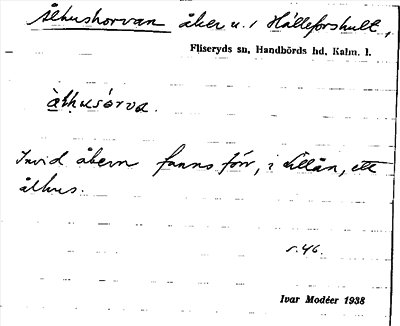 Ålhushorvan åker u. / Hälleforshult,
Fliseryds sn, Handbörds hd, Kalm. l.
àlhusórva.
Invid åkern fanns förr, i Lillån, ett
ålhus.
s. 46.
Ivar Modéer 1938